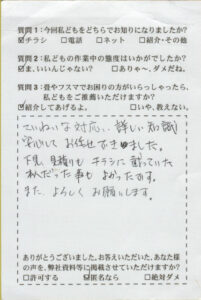 質問1:今回私どもをどちらでお知りになりましたか?
☑チラシ □電話 □ネット □紹介・その他
質問2:私どもの作業中の態度はいかがでしたか?
☑ま、いいんじゃない? □ありゃ~、ダメだね。
質問3:畳やフスマでお困りの方がいらっしゃったら、
私どもをご推薦いただけますか?
☑紹介してあげるよ。 □いや、教えない。
ていねいな対応、詳しい知識
安心して お任せできました。
下見、見積りも チラシに載っていた
まんだった事も よかったです。
また、よろしく お願いします。
ありがとうございました。お答えいただいた、あなた様
の声を、弊社資料等に掲載させていただけますか?
□許可する ☑匿名なら □絶対ダメ